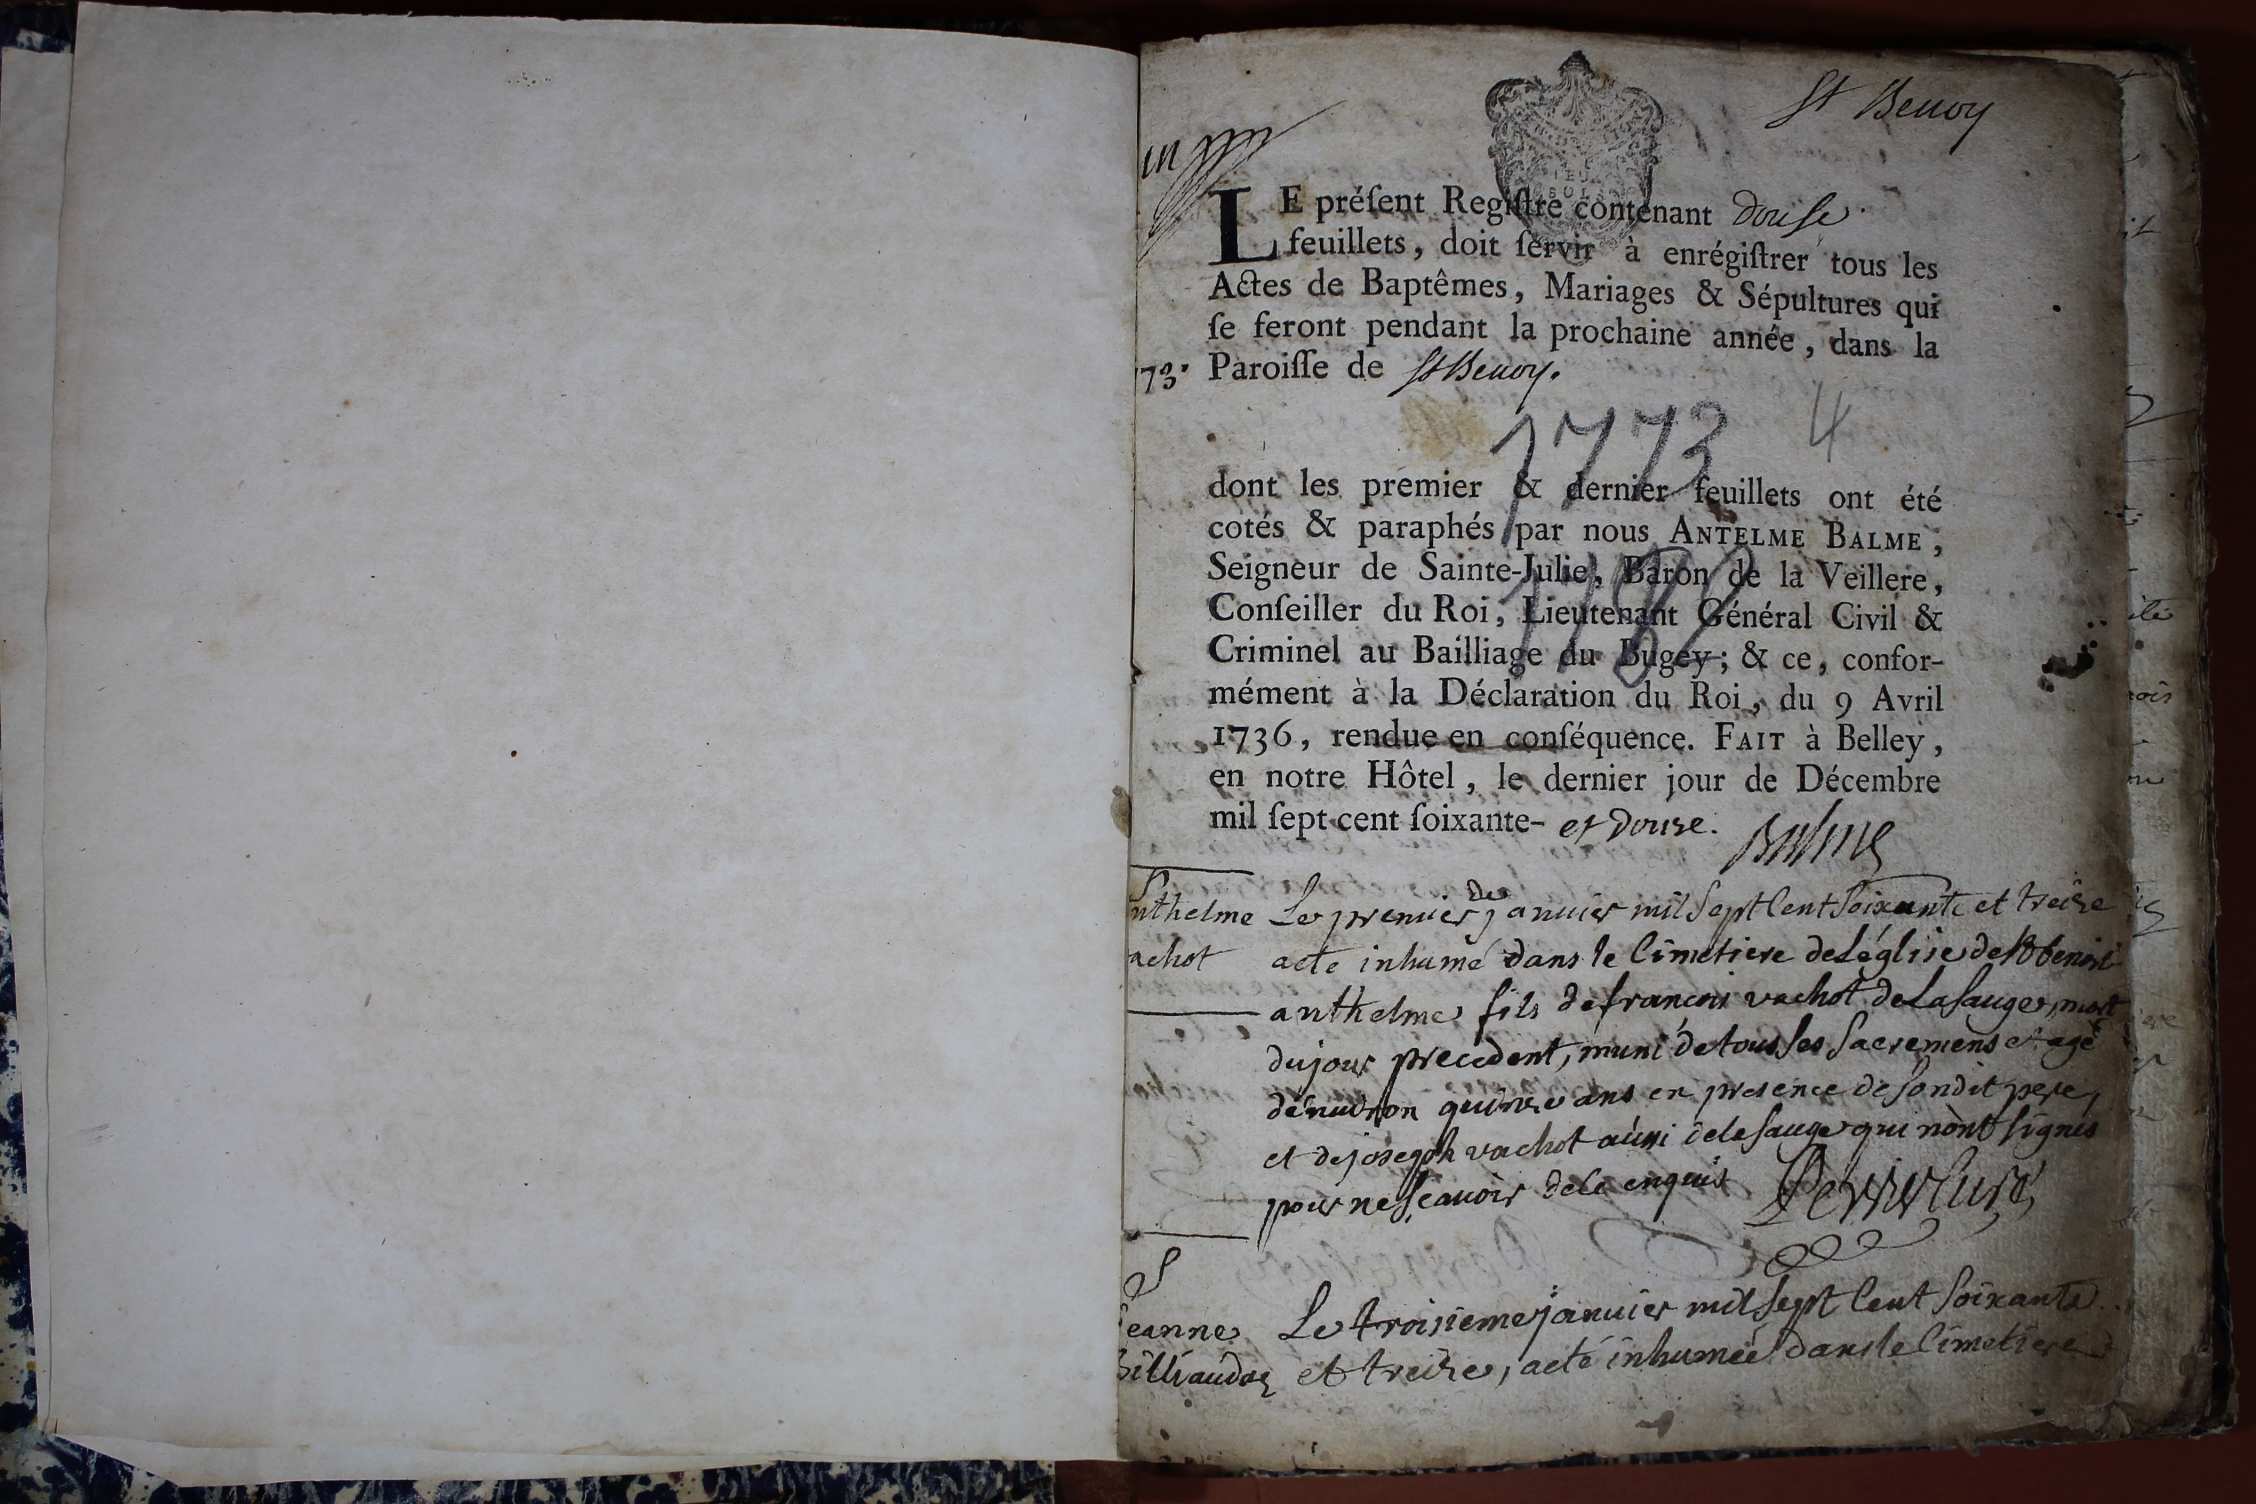 St Benoy
LE préſent Regiſtre contenant douse
feuillets, doit ſervir à enrégiſtrer tous les
Actes de Baptêmes, Mariages & Sépultures qui
ſe feront pendant la prochaine année, dans la
73. Paroiſſe de St Benoy.
1773 4
dont les premier & dernier feuillets ont été
cotés & paraphés par nous ANTELME BALME,
Seigneur de Sainte-Julie, Baron de la Veillere,
Conſeiller du Roi, Lieutenant Général Civil &
Criminel au Bailliage du Bugey; & ce, confor-
mément à la Déclaration du Roi, du 9 Avril
1736, rendue en conſéquence. FAIT à Belley,
en notre Hôtel, le dernier jour de Décembre
mil ſept cent ſoixante- et Douze.
Balme
S
nthelme Le premier De janvier mil Sept Cent Soixante et treize
achot acte inhumé dans le Cimetiere de Léglise de St benoit
anthelme fils de françois vachot de La sauge, mort
du jour precedent, muni de tous les Sacremens et agé
denviron quinze ans en presence de Son dit pere,
et de joseph vachot aussi dela sauge qui nont signés
pour ne Scavoir de ce enquis
S
Jeanne Le troisieme janvier mil Sept Cent Soixante
Billiaudaz et treize, acté inhumée dans le Cimetiere